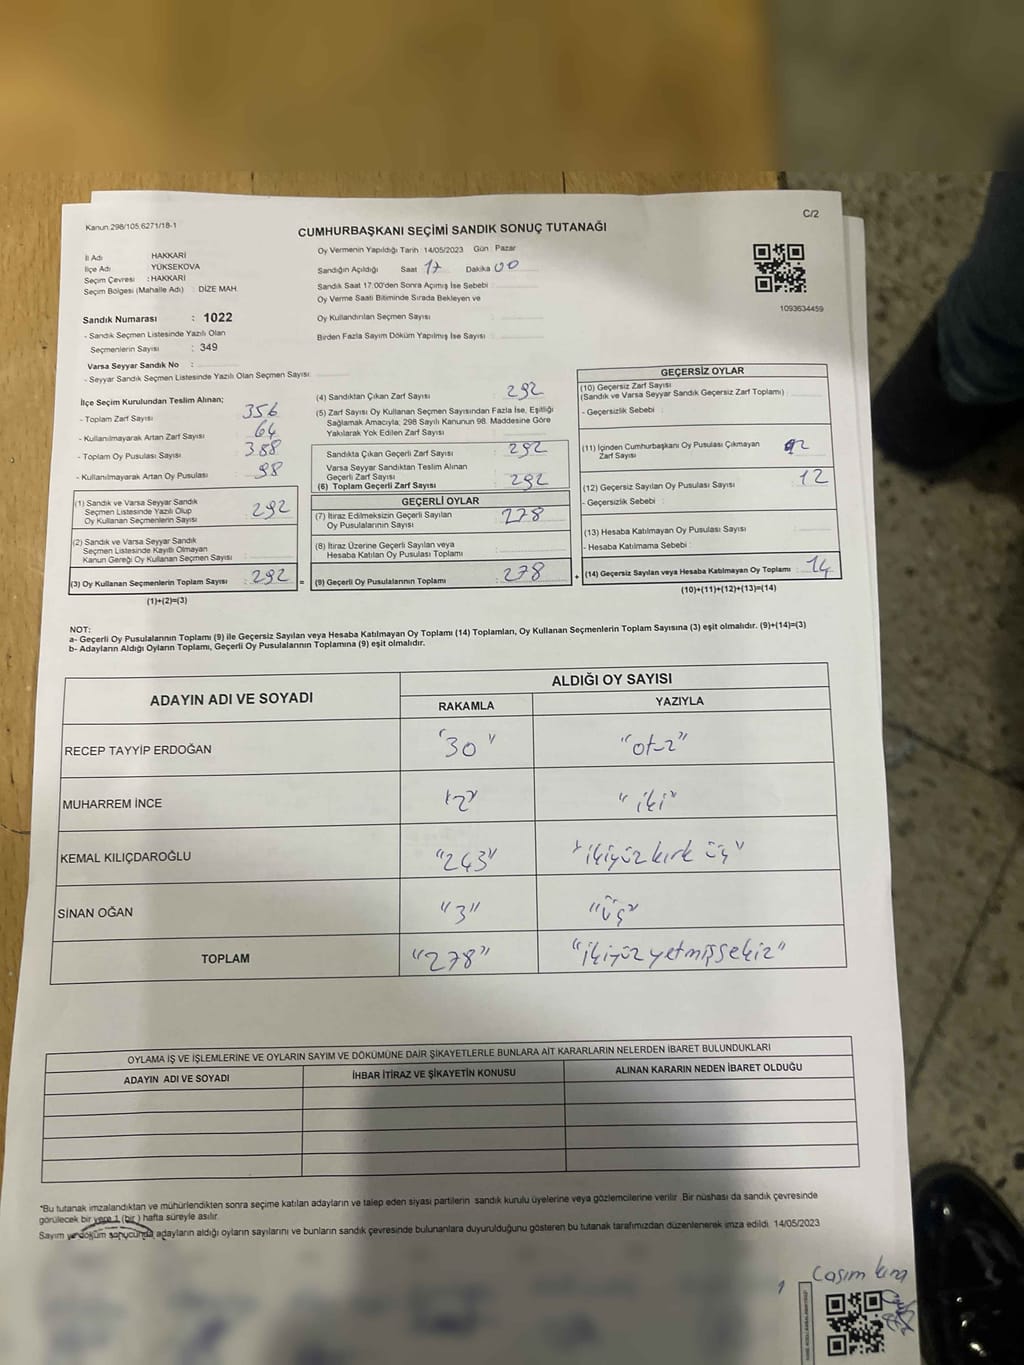 C/2
Kanun.298/105.6271/18-1
CUMHURBAŞKANI SEÇİMİ SANDIK SONUÇ TUTANAĞI
İl Adı HAKKARİ
İlçe Adı YÜKSEKOVA
Seçim Çevresi : HAKKARİ
Seçim Bölgesi (Mahalle Adı) : DİZE MAH.
Oy Vermenin Yapıldığı Tarih : 14/05/2023 Gün : Pazar
Sandığın Açıldığı Saat 17 Dakika 00
Sandık Saat 17:00'den Sonra Açımış İse Sebebi :
Oy Verme Saati Bitiminde Sırada Bekleyen ve
Oy Kullandırılan Seçmen Sayısı :
Birden Fazla Sayım Döküm Yapılmış İse Sayısı :
1093634459
Sandık Numarası : 1022
- Sandık Seçmen Listesinde Yazılı Olan
Seçmenlerin Sayısı : 349
Varsa Seyyar Sandık No :
- Seyyar Sandık Seçmen Listesinde Yazılı Olan Seçmen Sayısı:
İlçe Seçim Kurulundan Teslim Alınan;
- Toplam Zarf Sayısı 356
- Kullanılmayarak Artan Zarf Sayısı 64
- Toplam Oy Pusulası Sayısı 388
- Kullanılmayarak Artan Oy Pusulası 98
(1) Sandık ve Varsa Seyyar Sandık
Seçmen Listesinde Yazılı Olup
Oy Kullanan Seçmenlerin Sayısı : 292
(2) Sandık ve Varsa Seyyar Sandık
Seçmen Listesinde Kayıtlı Olmayan
Kanun Gereği Oy Kullanan Seçmen Sayısı :
(3) Oy Kullanan Seçmenlerin Toplam Sayısı : 292 =
(1)+(2)=(3)
(4) Sandıktan Çıkan Zarf Sayısı : 292
(5) Zarf Sayısı Oy Kullanan Seçmen Sayısından Fazla İse, Eşitliği
Sağlamak Amacıyla; 298 Sayılı Kanunun 98. Maddesine Göre
Yakılarak Yok Edilen Zarf Sayısı :
Sandıkta Çıkan Geçerli Zarf Sayısı : 292
Varsa Seyyar Sandıktan Teslim Alınan
Geçerli Zarf Sayısı
(6) Toplam Geçerli Zarf Sayısı : 292
GEÇERLİ OYLAR
(7) İtiraz Edilmeksizin Geçerli Sayılan
Oy Pusulalarının Sayısı : 278
(8) İtiraz Üzerine Geçerli Sayılan veya
Hesaba Katılan Oy Pusulası Toplamı :
(9) Geçerli Oy Pusulalarının Toplamı : 278 +
GEÇERSİZ OYLAR
(10) Geçersiz Zarf Sayısı
(Sandık ve Varsa Seyyar Sandık Geçersiz Zarf Toplamı) :
- Geçersizlik Sebebi :
(11) İçinden Cumhurbaşkanı Oy Pusulası Çıkmayan
Zarf Sayısı
(12) Geçersiz Sayılan Oy Pusulası Sayısı : 12
- Geçersizlik Sebebi :
(13) Hesaba Katılmayan Oy Pusulası Sayısı :
- Hesaba Katılmama Sebebi :
(14) Geçersiz Sayılan veya Hesaba Katılmayan Oy Toplamı : 14
(10)+(11)+(12)+(13)=(14)
NOT:
a- Geçerli Oy Pusulalarının Toplamı (9) ile Geçersiz Sayılan veya Hesaba Katılmayan Oy Toplamı (14) Toplamları, Oy Kullanan Seçmenlerin Toplam Sayısına (3) eşit olmalıdır. (9)+(14)=(3)
b- Adayların Aldığı Oyların Toplamı, Geçerli Oy Pusulalarının Toplamına (9) eşit olmalıdır.
ADAYIN ADI VE SOYADI ALDIĞI OY SAYISI
RAKAMLA YAZIYLA
RECEP TAYYİP ERDOĞAN "30" "otuz"
MUHARREM İNCE "2" "iki"
KEMAL KILIÇDAROĞLU "243" "ikiyüz kırk üç"
SİNAN OĞAN "3" "üç"
TOPLAM "278" "ikiyüz yetmişsekiz"
OYLAMA İŞ VE İŞLEMLERİNE VE OYLARIN SAYIM VE DÖKÜMÜNE DAİR ŞİKAYETLERLE BUNLARA AİT KARARLARIN NELERDEN İBARET BULUNDUKLARI
ADAYIN ADI VE SOYADI İHBAR İTİRAZ VE ŞİKAYETİN KONUSU ALINAN KARARIN NEDEN İBARET OLDUĞU
*Bu tutanak imzalandıktan ve mühürlendikten sonra seçime katılan adayların ve talep eden siyasi partilerin sandık kurulu üyelerine veya gözlemcilerine verilir. Bir nüshası da sandık çevresinde
görülecek bir yere 1 (bir) hafta süreyle asılır.
Sayım ve döküm sonucunda adayların aldığı oyların sayılarını ve bunların sandık çevresinde bulunanlara duyurulduğunu gösteren bu tutanak tarafımızdan düzenlenerek imza edildi. 14/05/2023